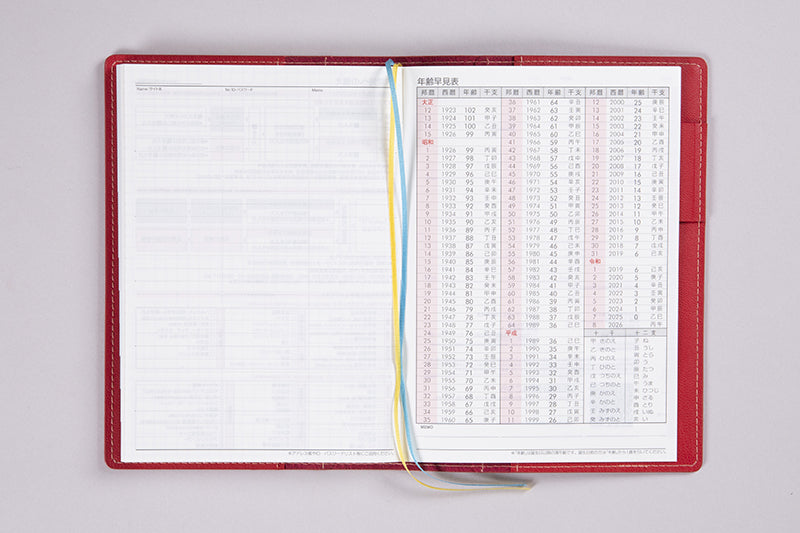 Name/サイト名 No./ID・パスワード Memo
年齢早見表
邦暦 西暦 年齢 干支
大正
12 1923 102 癸亥
13 1924 101 甲子
14 1925 100 乙丑
15 1926 99 丙寅
昭和
1 1926 99 丙寅
2 1927 98 丁卯
3 1928 97 戊辰
4 1929 96 己巳
5 1930 95 庚午
6 1931 94 辛未
7 1932 93 壬申
8 1933 92 癸酉
9 1934 91 甲戌
10 1935 90 乙亥
11 1936 89 丙子
12 1937 88 丁丑
13 1938 87 戊寅
14 1939 86 己卯
15 1940 85 庚辰
16 1941 84 辛巳
17 1942 83 壬午
18 1943 82 癸未
19 1944 81 甲申
20 1945 80 乙酉
21 1946 79 丙戌
22 1947 78 丁亥
23 1948 77 戊子
24 1949 76 己丑
25 1950 75 庚寅
26 1951 74 辛卯
27 1952 73 壬辰
28 1953 72 癸巳
29 1954 71 甲午
30 1955 70 乙未
31 1956 69 丙申
32 1957 68 丁酉
33 1958 67 戊戌
34 1959 66 己亥
35 1960 65 庚子
邦暦 西暦 年齢 干支
36 1961 64 辛丑
37 1962 63 壬寅
38 1963 62 癸卯
39 1964 61 甲辰
40 1965 60 乙巳
41 1966 59 丙午
42 1967 58 丁未
43 1968 57 戊申
44 1969 56 己酉
45 1970 55 庚戌
46 1971 54 辛亥
47 1972 53 壬子
48 1973 52 癸丑
49 1974 51 甲寅
50 1975 50 乙卯
51 1976 49 丙辰
52 1977 48 丁巳
53 1978 47 戊午
54 1979 46 己未
55 1980 45 庚申
56 1981 44 辛酉
57 1982 43 壬戌
58 1983 42 癸亥
59 1984 41 甲子
60 1985 40 乙丑
61 1986 39 丙寅
62 1987 38 丁卯
63 1988 37 戊辰
64 1989 36 己巳
平成
1 1989 36 己巳
2 1990 35 庚午
3 1991 34 辛未
4 1992 33 壬申
5 1993 32 癸酉
6 1994 31 甲戌
7 1995 30 乙亥
8 1996 29 丙子
9 1997 28 丁丑
10 1998 27 戊寅
11 1999 26 己卯
邦暦 西暦 年齢 干支
12 2000 25 庚辰
13 2001 24 辛巳
14 2002 23 壬午
15 2003 22 癸未
16 2004 21 甲申
17 2005 20 乙酉
18 2006 19 丙戌
19 2007 18 丁亥
20 2008 17 戊子
21 2009 16 己丑
22 2010 15 庚寅
23 2011 14 辛卯
24 2012 13 壬辰
25 2013 12 癸巳
26 2014 11 甲午
27 2015 10 乙未
28 2016 9 丙申
29 2017 8 丁酉
30 2018 7 戊戌
31 2019 6 己亥
令和
1 2019 6 己亥
2 2020 5 庚子
3 2021 4 辛丑
4 2022 3 壬寅
5 2023 2 癸卯
6 2024 1 甲辰
7 2025 0 乙巳
8 2026 丙午
十干 十二支
甲 きのえ 子 ね
乙 きのと 丑 うし
丙 ひのえ 寅 とら
丁 ひのと 卯 う
戊 つちのえ 辰 たつ
己 つちのと 巳 み
庚 かのえ 午 うま
辛 かのと 未 ひつじ
壬 みずのえ 申 さる
癸 みずのと 酉 とり
戌 いぬ
亥 い
MEMO